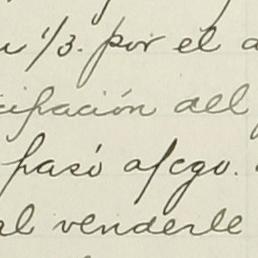 1/3. por el
cipación del
pasó a/cgo.
al venderle